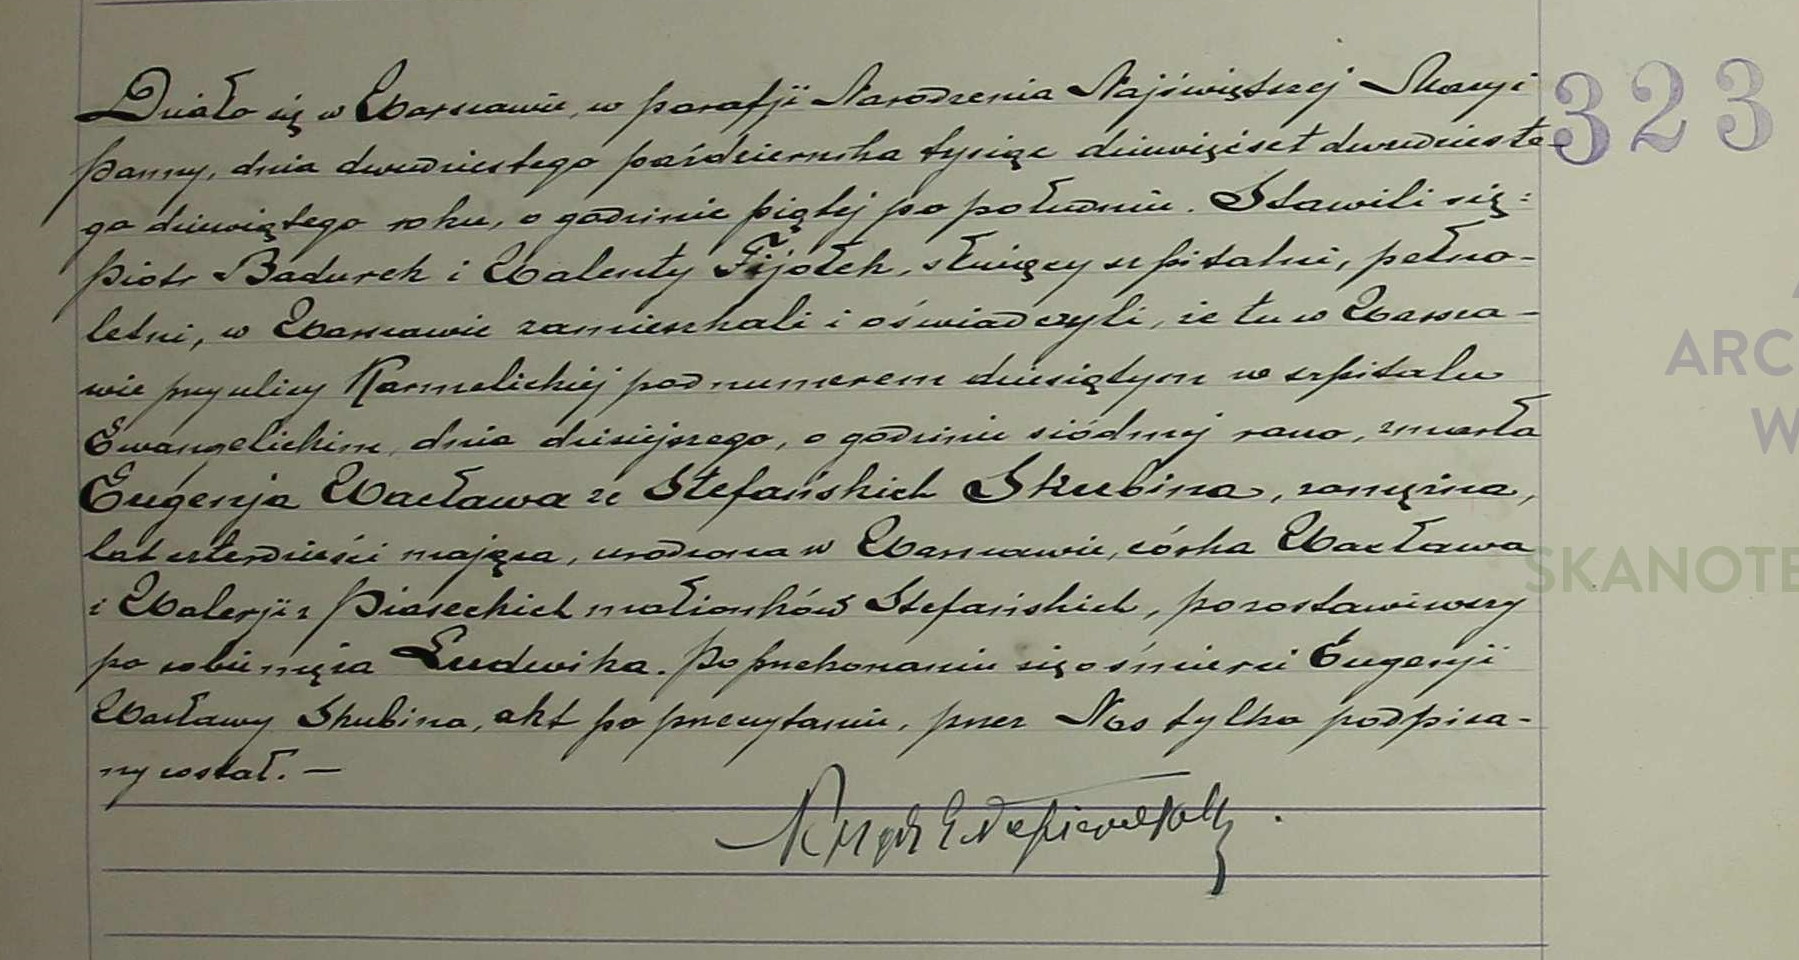 Działo się w Warszawie, w parafji Narodzenia Najświętszej Maryi 323
Panny, dnia dwudziestego października tysiąc dziewięćset dwudzieste-
go dziewiątego roku, o godzinie piątej po południu. Stawili się:
Piotr Badurek i Walenty Fijołek, służący szpitalni, pełno-
letni, w Warszawie zamieszkali i oświadczyli, że tu w Warsza-
wie przy ulicy Karmelickiej pod numerem dziesiątym w szpitalu
Ewangelickim, dnia dzisiejszego, o godzinie siódmej rano, zmarła
Eugenja Wacława ze Stefańskich Skubina, zamężna,
lat czterdzieści mająca, urodzona w Warszawie, córka Wacława
i Walerji z Piaseckich małżonków Stefańskich, pozostawiwszy
po sobie męża Ludwika. Po przekonaniu się o śmierci Eugenji
Wacławy Skubina, akt po przeczytaniu, przez Nas tylko podpisa-
ny został. —
ARC
W
SKANOTE